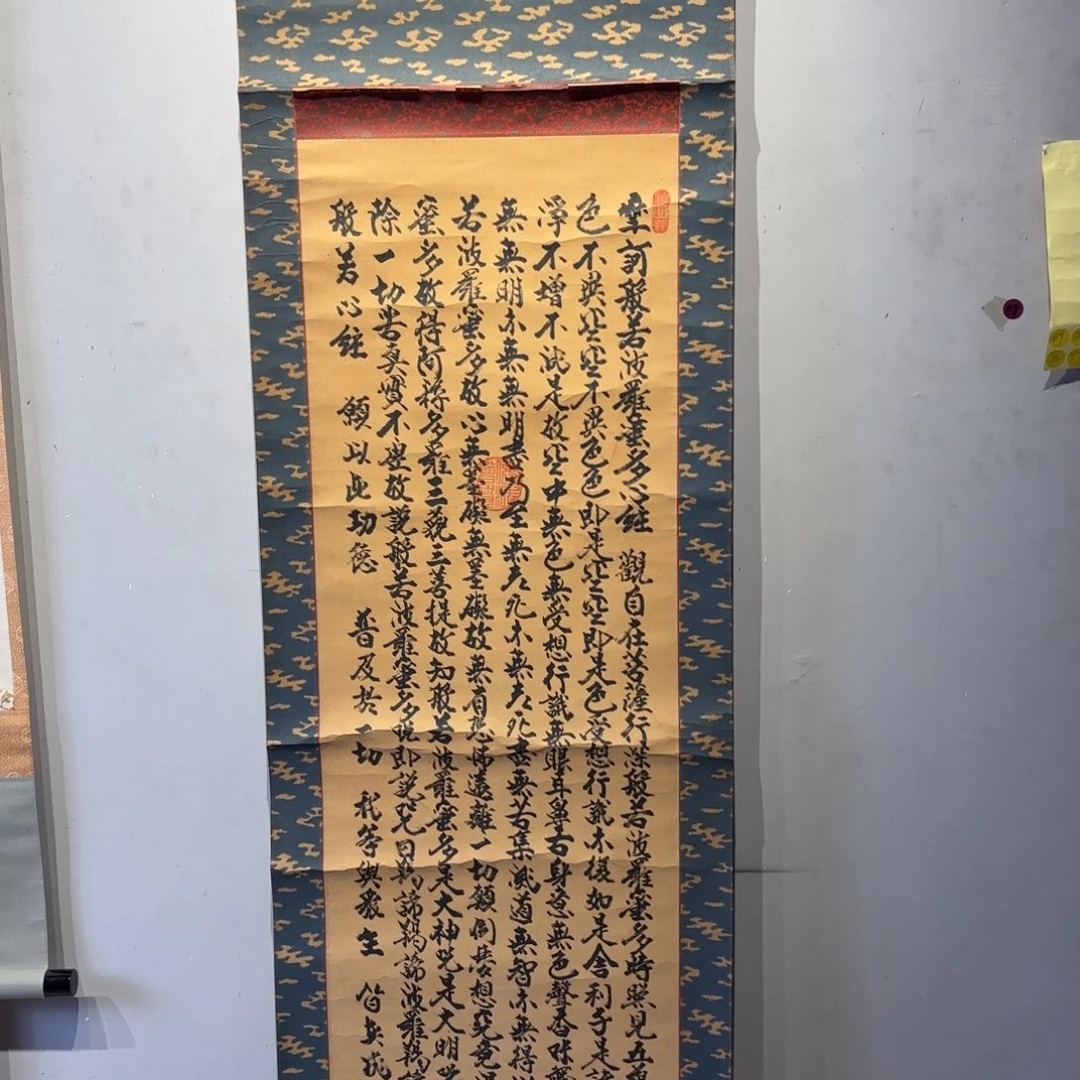 摩訶般若波羅蜜多心經 觀自在菩薩行深般若波羅蜜多時照見五
色不異空空不異色色即是空空即是色受想行識亦復如是舍利子是
淨不增不減是故空中無色無受想行識無眼耳鼻舌身意無色聲香味
無無明亦無無明盡乃至無老死亦無老死盡無苦集滅道無智亦無得以
若波羅蜜多故心無罣礙無罣礙故無有恐怖遠離一切顛倒夢想究竟涅
蜜多故得阿耨多羅三藐三菩提故知般若波羅蜜多是大神咒是大明咒
除一切苦真實不虛故說般若波羅蜜多咒即說咒曰羯諦羯諦波羅羯
般若心經 願以此功德 普及於一切 我等與眾生 皆共成